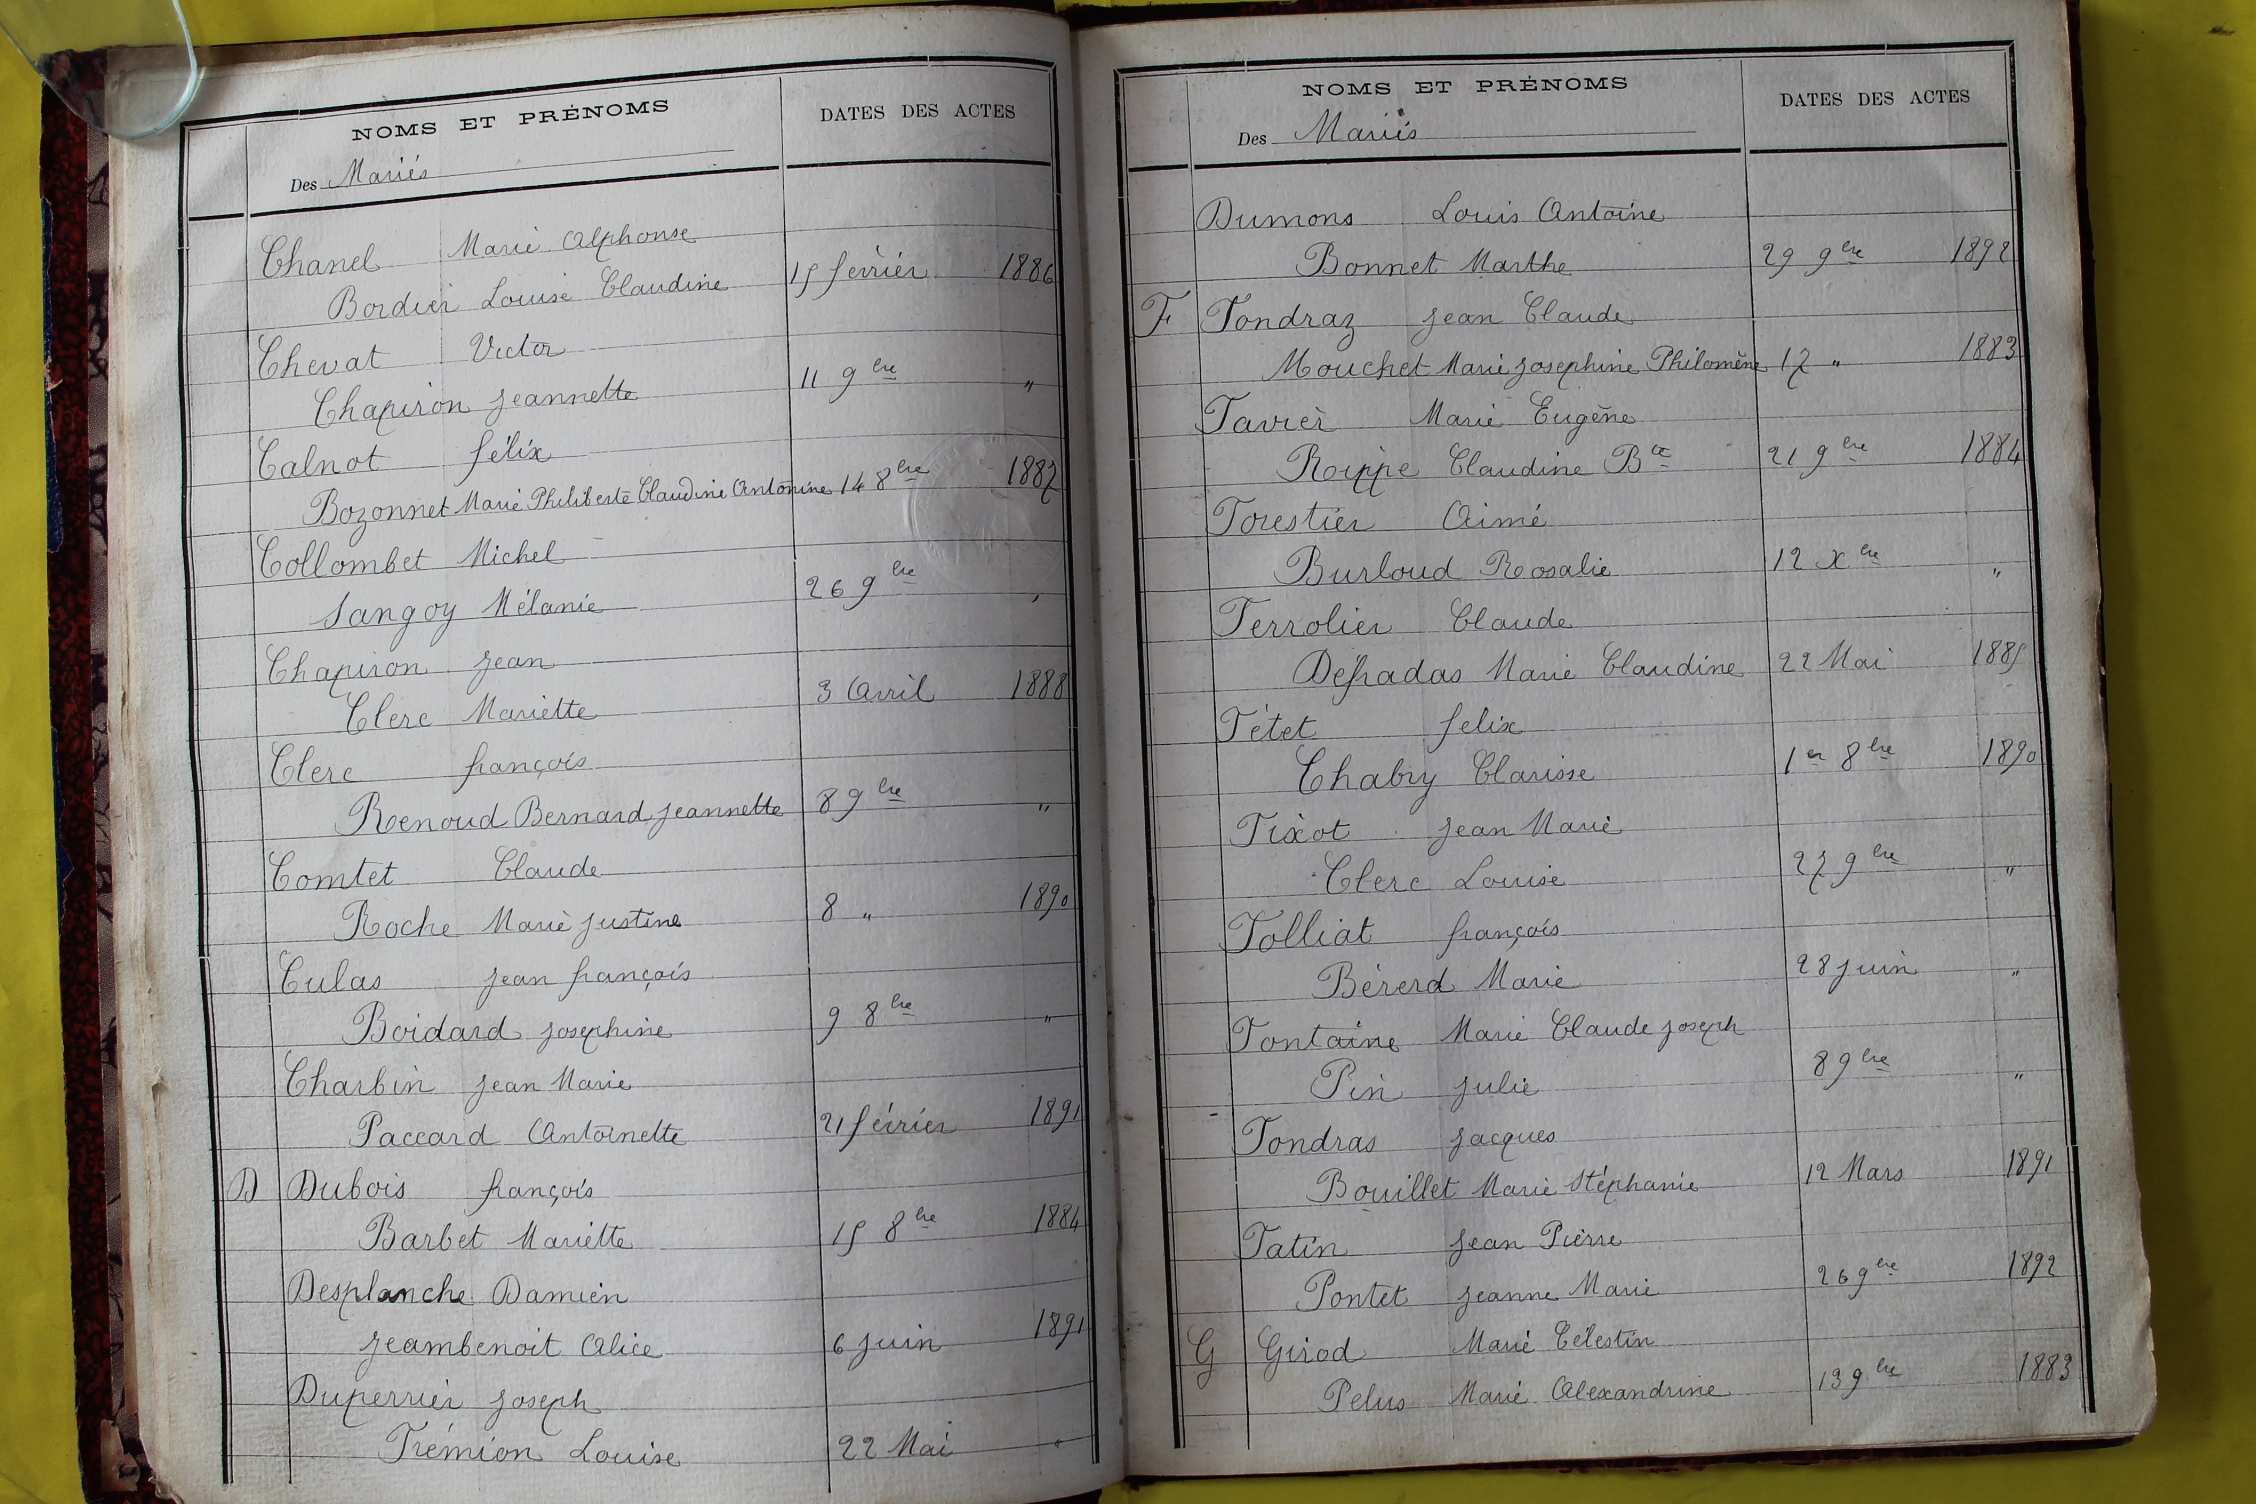 NOMS ET PRÉNOMS DATES DES ACTES
Des Mariés
Chanel Marie Alphonse
Bordier Louise Claudine 15 février 1886
Chevat Victor
Chapiron Jeannette 11 9bre "
Calnot félix
Bozonnet Marie Philiberte Claudine Antonine 14 8bre 1887
Collombet Michel
Sangoy Mélanie 26 9bre "
Chapiron Jean
Clerc Mariette 3 Avril 1888
Clerc françois
Renoud Bernard Jeannette 8 9bre "
Comtet Claude
Roche Marie Justine 8 " 1890
Culas Jean françois
Boidard Josephine 9 8bre "
Charbin Jean Marie
Paccard Antoinette 21 février 1891
D Dubois françois
Barbet Mariette 15 8bre 1884
Desplanche Damien
Jeambenoit Alice 6 Juin 1891
Duperrier Joseph
Trémion Louise 22 Mai "
NOMS ET PRÉNOMS DATES DES ACTES
Des Mariés
Dumons Louis Antoine
Bonnet Marthe 29 9bre 1892
F Fondraz Jean Claude
Mouchet Marie Josephine Philomène 17 " 1883
Favier Marie Eugène
Roippe Claudine Bte 21 9bre 1884
Forestier Aimé
Burloud Rosalie 12 Xbre "
Ferrolier Claude
Defradas Marie Claudine 22 Mai 1885
Fétet felix
Chabry Clarisse 1er 8bre 1890
Fixot Jean Marie
Clerc Louise 27 9bre "
Folliat françois
Bérerd Marie 28 Juin "
Fontaine Marie Claude Joseph
Pin Julie 8 9bre "
Fondras Jacques
Bouillet Marie Stéphanie 12 Mars 1891
Fatin Jean Pierre
Pontet Jeanne Marie 26 9bre 1892
G Girod Marie Célestin
Pelus Marie Alexandrine 13 9bre 1883